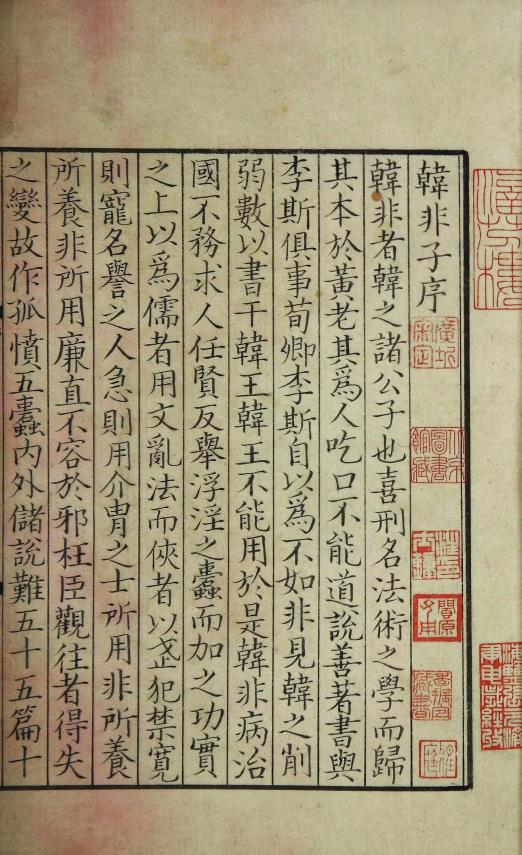 韓非子序
韓非者韓之諸公子也喜刑名法術之學而歸
其本於黃老其爲人吃口不能道說善著書與
李斯俱事荀卿李斯自以爲不如非見韓之削
弱數以書干韓王韓王不能用於是韓非病治
國不務求人任賢反舉浮淫之蠹而加之功實
之上以爲儒者用文亂法而俠者以武犯禁寬
則寵名譽之人急則用介胄之士所用非所養
所養非所用廉直不容於邪枉臣觀往者得失
之變故作孤憤五蠹內外儲說難五十五篇十